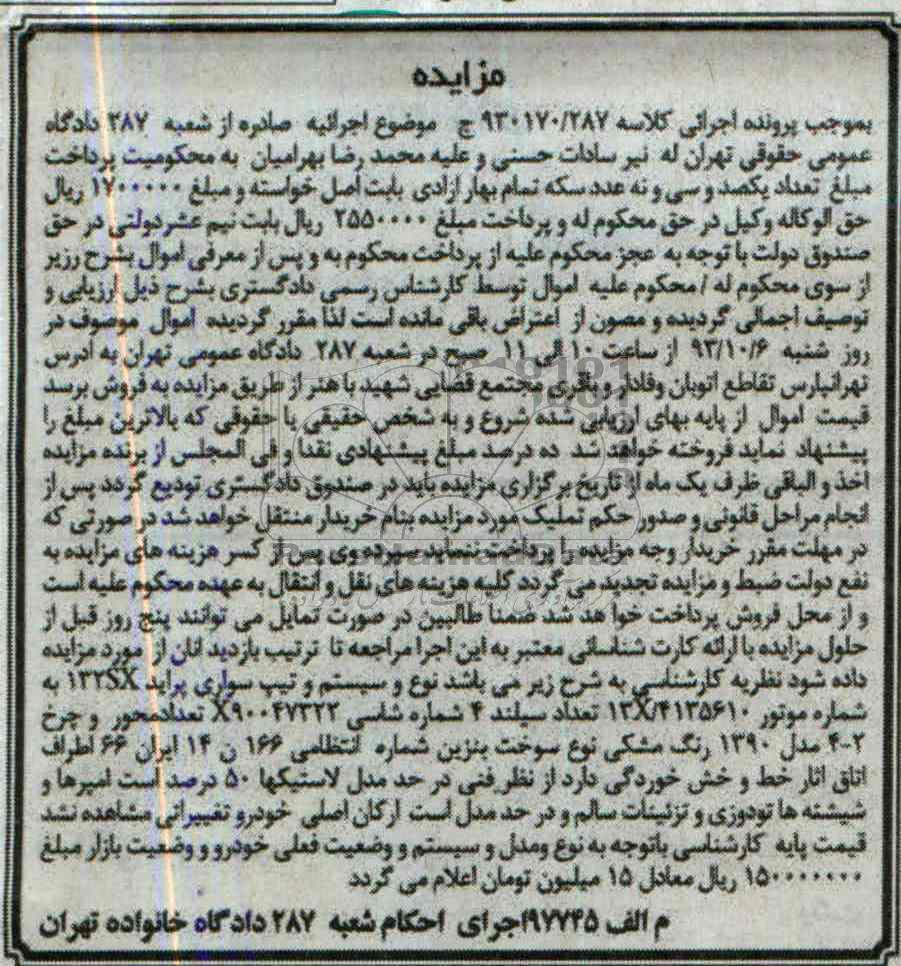 مزایده
بموجب پرونده اجرائی کلاسه ۹۳۰۱۷۰/۲۸۷ ج موضوع اجرائیه صادره از شعبه ۲۸۷ دادگاه
عمومی حقوقی تهران له نیر سادات حسنی و علیه محمد رضا بهرامیان به محکومیت پرداخت
مبلغ تعداد یکصد و سی و نه عدد سکه تمام بهار ازادی بابت اصل خواسته و مبلغ ۱۷۰۰۰۰۰ ریال
حق الوکاله وکیل در حق محکوم له و پرداخت مبلغ ۲۵۵۰۰۰۰ ریال بابت نیم عشر دولتی در حق
صندوق دولت با توجه به عجز محکوم علیه از پرداخت محکوم به و پس از معرفی اموال بشرح رزیر
از سوی محکوم له / محکوم علیه اموال توسط کارشناس رسمی دادگستری بشرح ذیل ارزیابی و
توصیف اجمالی گردیده و مصون از اعتراض باقی مانده است لذا مقرر گردیده اموال موصوف در
روز شنبه ۹۳/۱۰/۶ از ساعت ۱۰ الی ۱۱ صبح در شعبه ۲۸۷ دادگاه عمومی تهران به ادرس
تهرانپارس تقاطع اتوبان وفادار و باقری مجتمع قضایی شهید با هنر از طریق مزایده به فروش برسد
قیمت اموال از پایه بهای ارزیابی شده شروع و به شخص حقیقی یا حقوقی که بالاترین مبلغ را
پیشنهاد نماید فروخته خواهد شد ده درصد مبلغ پیشنهادی نقدا و فی المجلس از برنده مزایده
اخذ و الباقی ظرف یک ماه از تاریخ برگزاری مزایده باید در صندوق دادگستری تودیع گردد پس از
انجام مراحل قانونی و صدور حکم تملیک مورد مزایده بنام خریدار منتقل خواهد شد در صورتی که
در مهلت مقرر خریدار وجه مزایده را پرداخت ننماید سپرده وی پس از کسر هزینه های مزایده به
نفع دولت ضبط و مزایده تجدید می گردد کلیه هزینه های نقل و انتقال به عهده محکوم علیه است
و از محل فروش پرداخت خوا هد شد ضمنا طالبین در صورت تمایل می توانند پنج روز قبل از
حلول مزایده با ارائه کارت شناسائی معتبر به این اجرا مراجعه تا ترتیب بازدید انان از مورد مزایده
داده شود نظریه کارشناسی به شرح زیر می باشد نوع و سیستم و تیپ سواری پراید ۱۳۲SX به
شماره موتور ۱۳X/۴۱۳۵۶۱۰ تعداد سیلند ۴ شماره شاسی X۹۰۰۴۷۳۲۲ تعدادمحور و چرخ
۴-۲ مدل ۱۳۹۰ رنگ مشکی نوع سوخت بنزین شماره انتظامی ۱۶۶ ن ۱۴ ایران ۶۶ اطراف
اتاق اثار خط و خش خوردگی دارد از نظر فنی در حد مدل لاستیکها ۵۰ درصد است امپرها و
شیشته ها تودوزی و تزئینات سالم و در حد مدل است ارکان اصلی خودرو تغییراتی مشاهده نشد
قیمت پایه کارشناسی باتوجه به نوع ومدل و سیستم و وضعیت فعلی خودرو و وضعیت بازار مبلغ
۱۵۰۰۰۰۰۰۰ ریال معادل ۱۵ میلیون تومان اعلام می گردد
م الف ۹۷۷۴۵ااجرای احکام شعبه ۲۸۷ دادگاه خانواده تهران